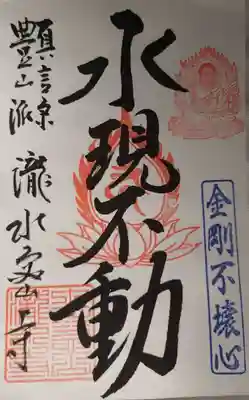 金剛不壊心
水現不動
真言宗
豐山派
瀧水
山
寺